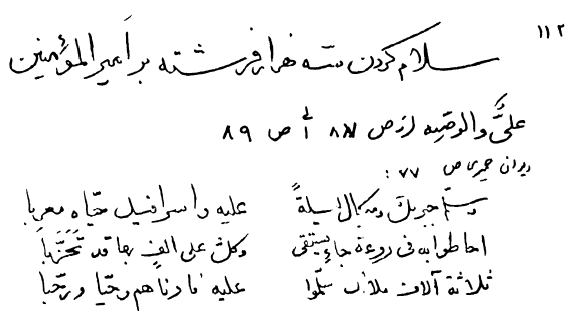 ۱۱۲
سلام کردن سه هزار فرشته بر أمیر المؤمنین
علیّ والوصیه از ص ۸۷ الی ص ۸۹
دیوان حمیری ص ۷۷ :
وسلّم جبریل ومیکال لیلةً علیه واسرافیل حیّاه معربا
احاطوا به فی روعة جاء یستقی وکلّ علی الف بها قد تحزّبا
ثلاثة آلاف ملائك سلّموا علیه فادناهم وحیّا ورحّبا